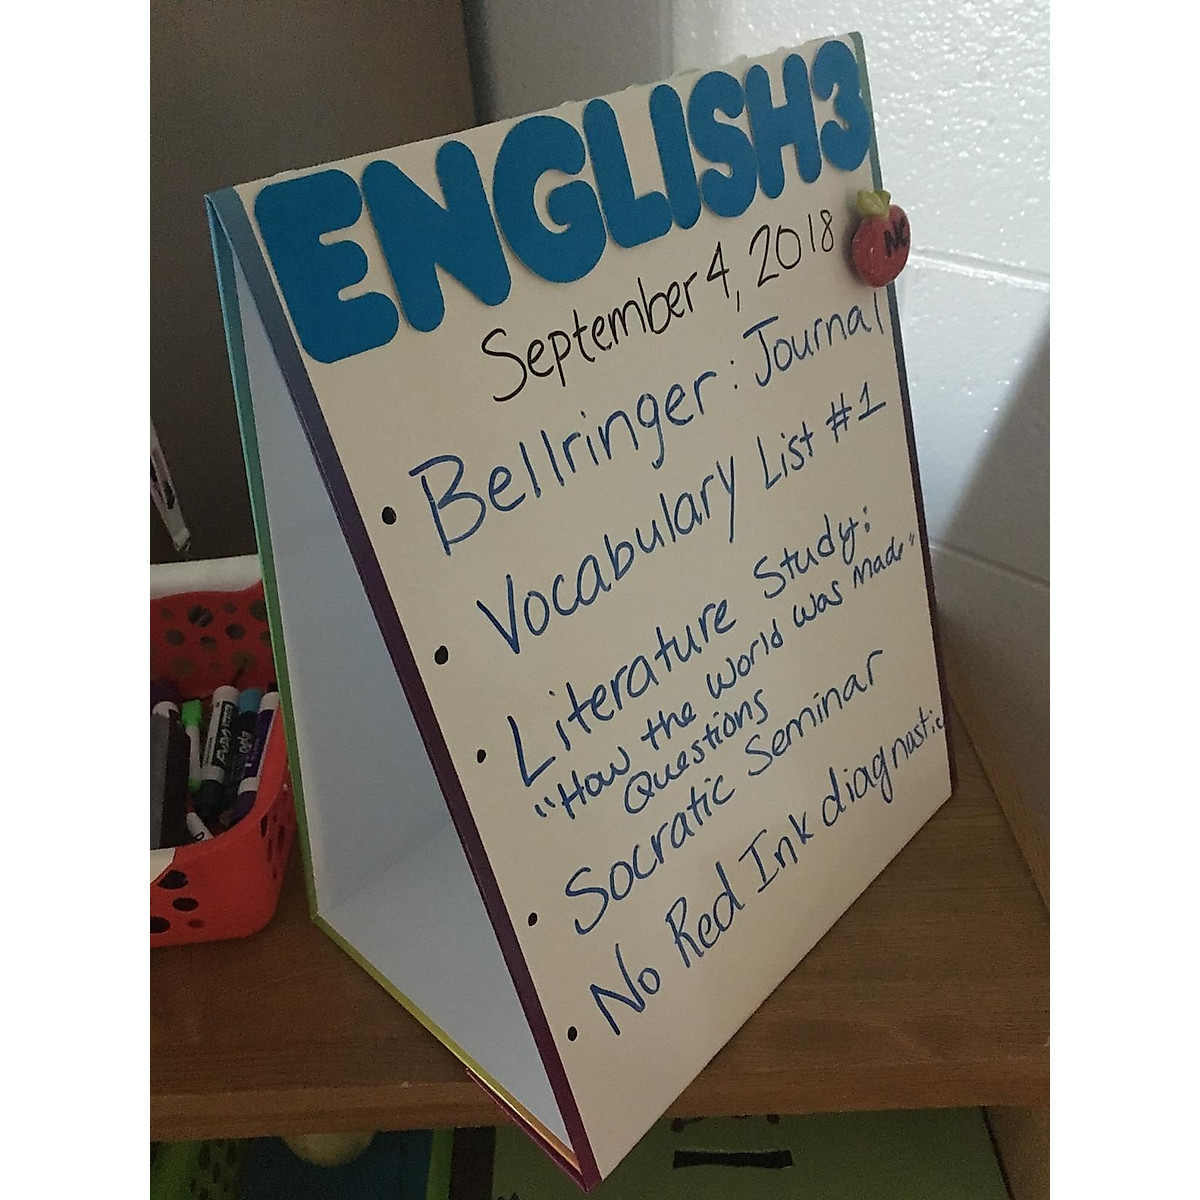 ENGLISH3
September 4, 2018
NC
• Bellringer: Journal
• Vocabulary List #1
• Literature Study:
"How the World Was Made"
Questions
• Socratic Seminar
• No Red Ink diagnostic
EXPO